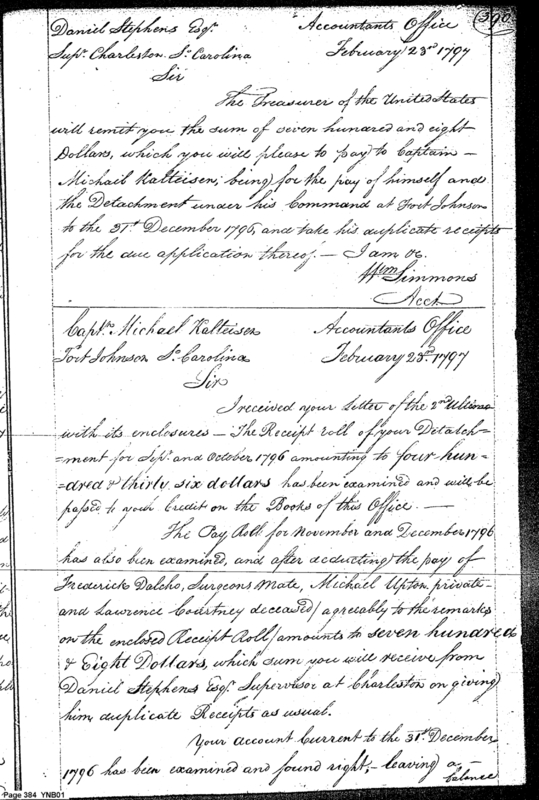 390
Daniel Stephens Esqr. Accountants Office
Supr. Charleston So. Carolina February 23rd 1797
Sir
The Treasurer of the United States
will remit you the sum of seven hundred and eight
Dollars, which you will please to pay to Captain -
Michail Kalteisen; being for the pay of himself and
the Detachment under his Command at Fort Johnson
to the 31st December 1796, and take his duplicate receipts
for the due application thereof. - I am &c.
Wm Simmons
Acct.
Captn. Michael Kalteisen Accountants Office
Fort Johnson So. Carolina February 23rd. 1797
Sir
I received your Letter of the 2nd Ultimo
with its enclosures - The Receipt roll of your Detatch-
=ment for Sepr. and October 1796 amounting to four hun-
=dred & thirty six dollars has been examined and will be
passed to your Credit on the Books of this Office. -
The Pay Roll for November and December 1796
has also been examined, and after deducting the pay of
Frederick Dalcho, Surgeons Mate, Michael Upton, private-
and Lawrence Courtney deceased / agreably to the remarks
on the enclosed Receipt Roll / amounts to seven hundred
& Eight Dollars, which sum you will receive from
Daniel Stephens Esqr. Supervisor at Charleston on giving
him duplicate Receipts as usual.
Your Account Current to the 31st. December
1796 has been examined and found right, - leaving a -
balance
Page 384 YNB01